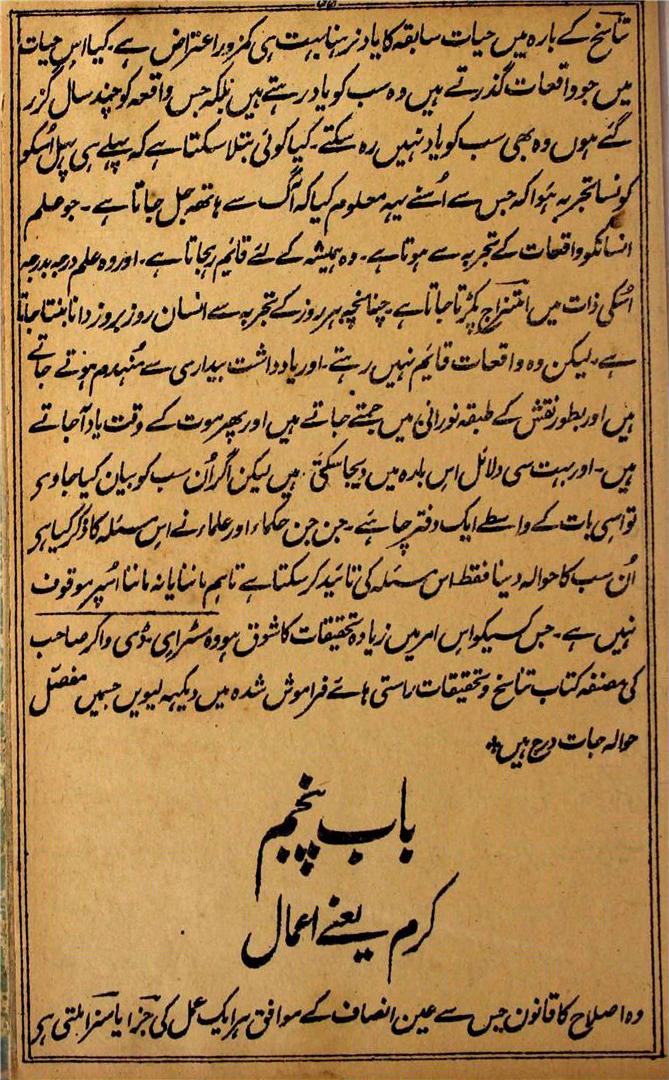 تناسخ کے بارہ میں حیات سابقہ کا یاد نرہنا بہت ہی کمزور اعتراض ہے۔ کیا اس حیات
میں جو واقعات گذرتے ہیں وہ سب کو یاد رہتے ہیں بلکہ جس واقعہ کو چند سال گزر
گئے ہوں وہ بھی سب کو یاد نہیں رہ سکتے۔ کیا کوئی بتلا سکتا ہے کہ پہلے ہی پہل اُسکو
کونسا تجربہ ہُوا کہ جس سے اُسنے یہہ معلوم کیا کہ آگ سے ہاتھ جل جاتا ہے۔ جو علم
انسانکو واقعات کے تجربہ سے ہوتا ہے۔ وہ ہمیشہ کے لئے قائیم رہجاتا ہے۔ اور وہ علم درجہ بدرجہ
اُسکی ذات میں امتزاج پکڑتا جاتا ہے۔ چنانچہ ہر روز کے تجربہ سے انسان روز بروز دانا بنتا جاتا
ہے۔ لیکن وہ واقعات قائیم نہیں رہتے۔ اور یادداشت بیداری سے مُنہدم ہوتے جاتے
ہیں اور بطور نقش کے طبقہ نورانی میں جمتے جاتے ہیں اور پھر موت کے وقت یاد آجاتے
ہیں۔ اور بہت سی دلائل اس بارہ میں دیجاسکتی ہیں لیکن اگر اُن سب کو بیان کیا جاوے
تو اسی بات کے واسطے ایک دفتر چاہئے۔ جن جن حکماء اور علماء نے اس مسئلہ کا ذکر کیا ہے
اُن سب کا حوالہ دینا فقط اس مسئلہ کی تائید کرسکتا ہے تاہم ماننا یا نہ ماننا اُسپر موقوف
نہیں ہے۔ جس کسیکو اس امر میں زیادہ تحقیقات کا شوق ہو وہ مسٹر ای۔ ڈی واکر صاحب
کی مصنفہ کتاب تناسخ و تحقیقات راستی ہائے فراموش شدہ میں دیکہہ لیویں جسمیں مفصّل
حوالہ جات درج ہیں*
باب پنجم
کرم یعنے اعمال
وہ اصلاح کا قانون جس سے عین انصاف کے موافق ہر ایک عمل کی جزا یا سزا ملتی ہے